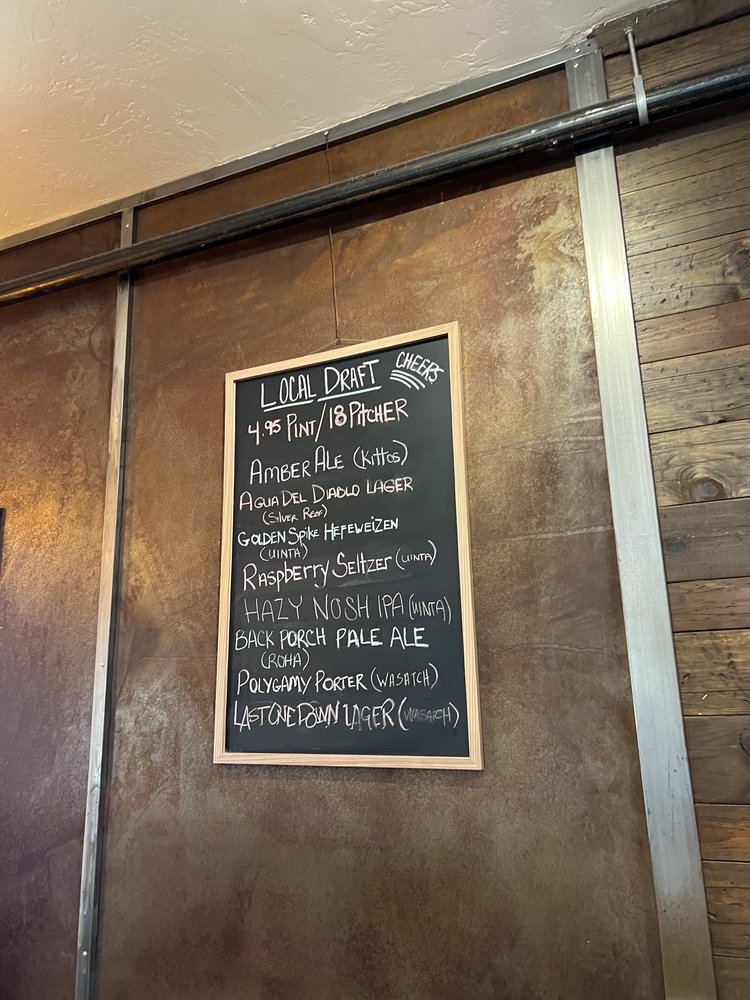 LOCAL DRAFT CHEERS
4.95 PINT/18 PITCHER
AMBER ALE (KiTTOS)
AGUA DEL DIABLO LAGER
(SILVER REEF)
GOLDEN SPIKE HEFEWEIZEN
(UINTA)
RASPBERRY SELTZER (UINTA)
HAZY NOSH IPA (UINTA)
BACK PORCH PALE ALE
(ROHA)
POLYGAMY PORTER (WASATCH)
LAST ONE DOWN LAGER (WASATCH)